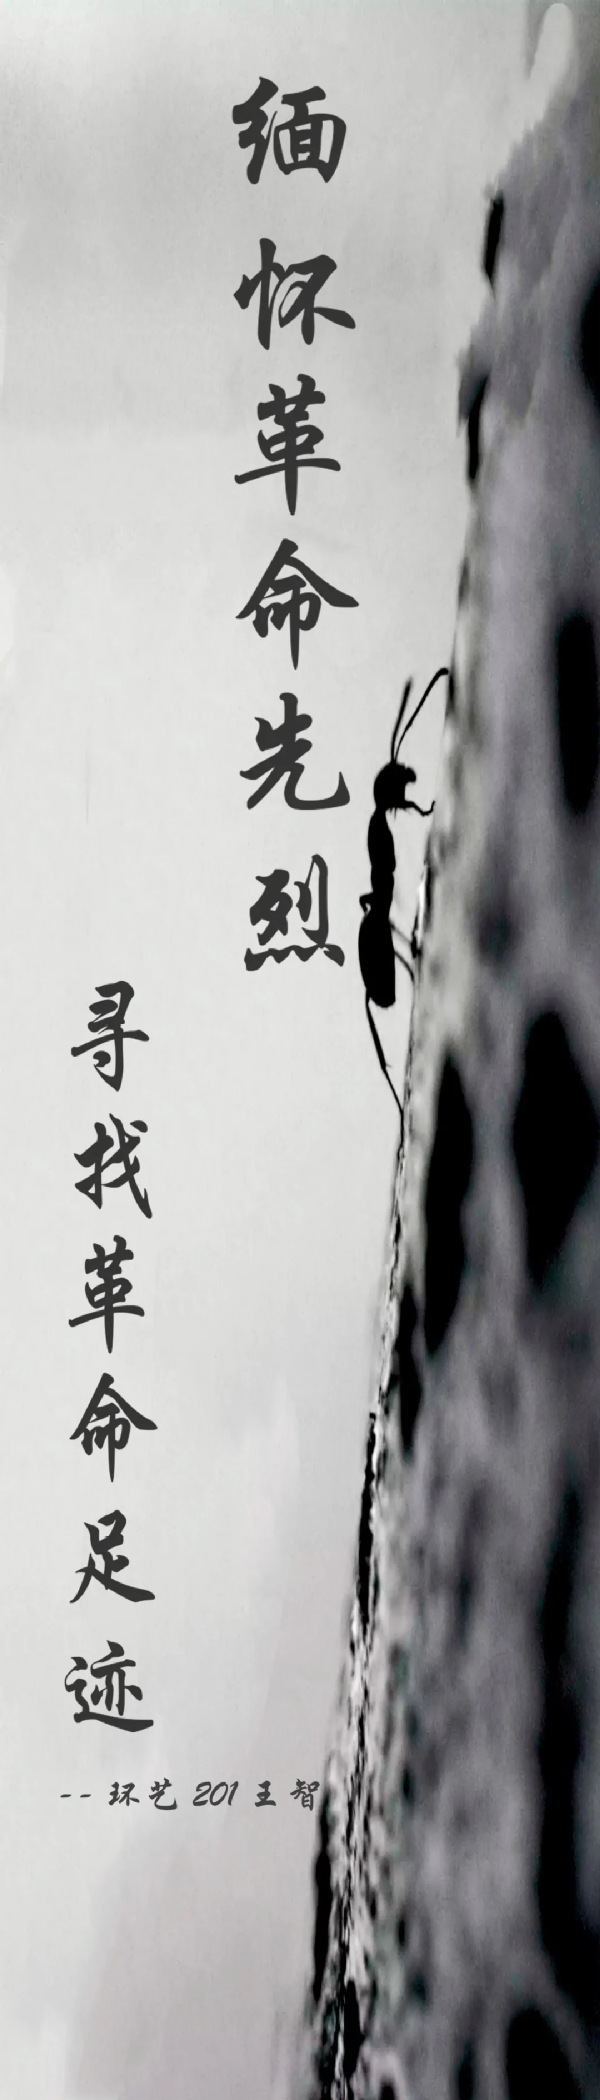 缅怀革命先烈
寻找革命足迹
--环艺 201 王智